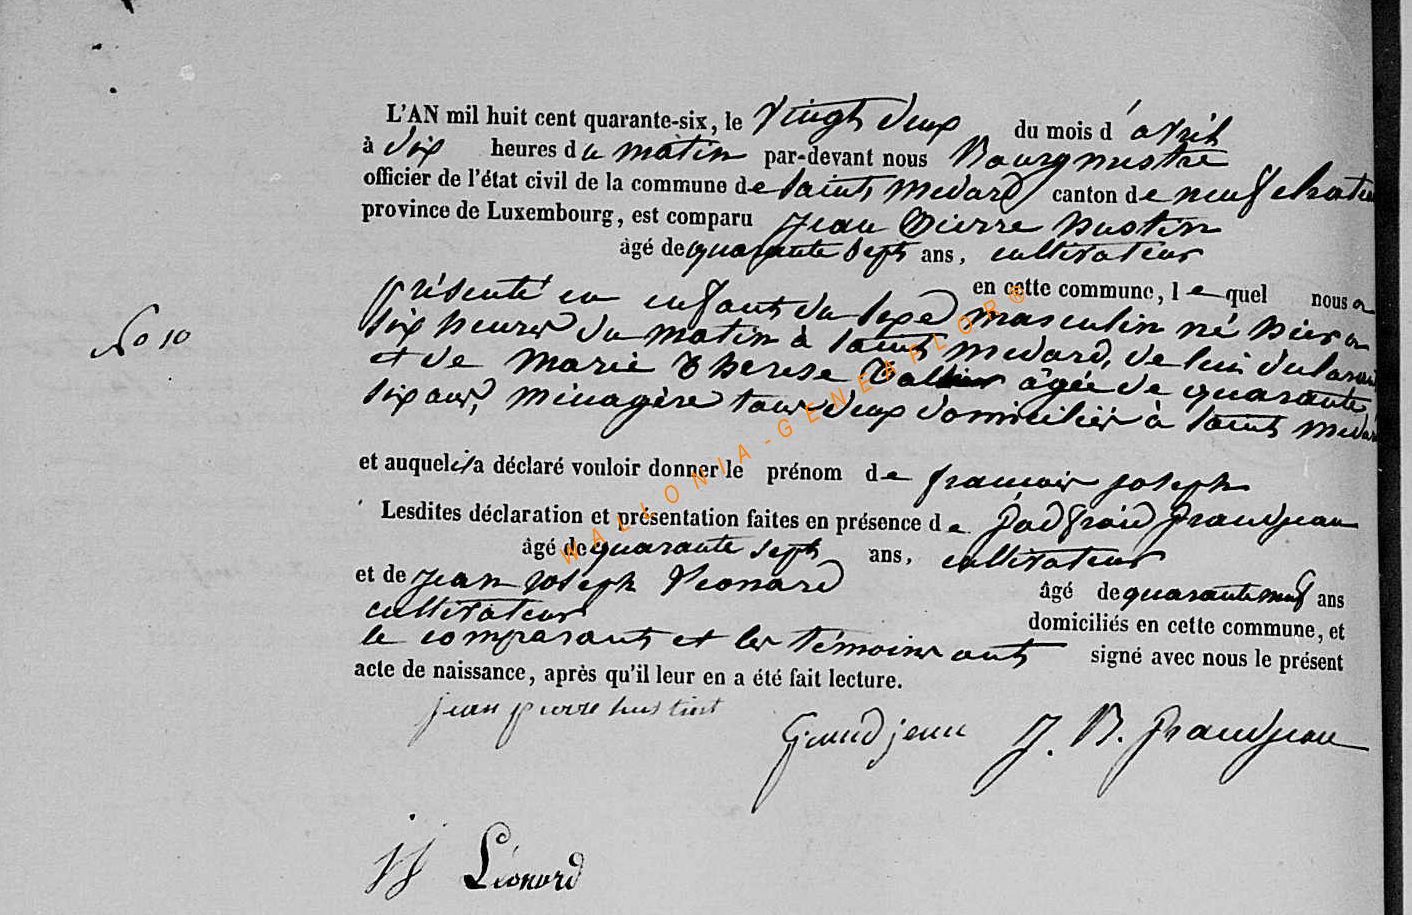 L'AN mil huit cent quarante-six, le vingt deux du mois d'avril
à dix heures du matin par-devant nous Bourgmestre
officier de l'état civil de la commune de Saint Medard canton de neufchateau
province de Luxembourg, est comparu Jean Pierre hustin
âgé de quarante sept ans, cultivateur
en cette commune, lequel nous a
présenté un enfant du sexe masculin né hier a
six heures du matin à Saint Medard, de lui déclarant
No 10
et de Marie Therese âgée de quarante
six ans, ménagère tous deux domiciliés à Saint Medard
et auquel il a déclaré vouloir donner le prénom de françois joseph
Lesdites déclaration et présentation faites en présence de Godfroid Grandjean
âgé de quarante sept ans, cultivateur
et de Jean joseph Leonard âgé de quarante neuf ans
cultivateur domiciliés en cette commune, et
le comparant et les témoins ont signé avec nous le présent
acte de naissance, après qu'il leur en a été fait lecture.
jean pierre hustint
Grandjean J. B. Grandjean
JJ Léonard
WALLONIA-GENEAPLOR®